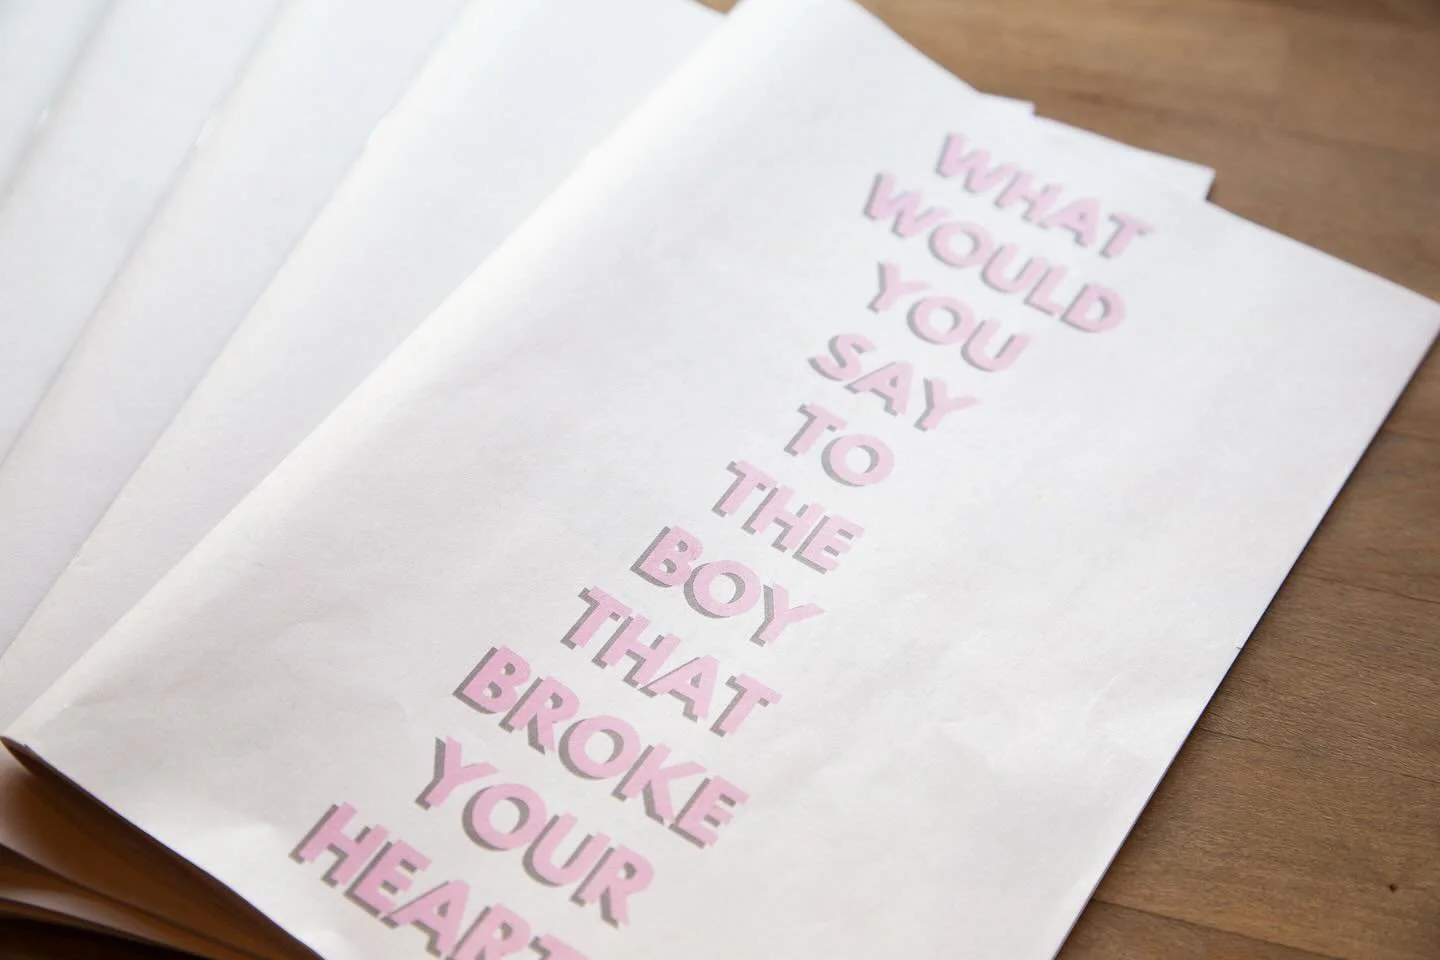 WHAT
WOULD
YOU
SAY
TO
THE
BOY
THAT
BROKE
YOUR
HEART